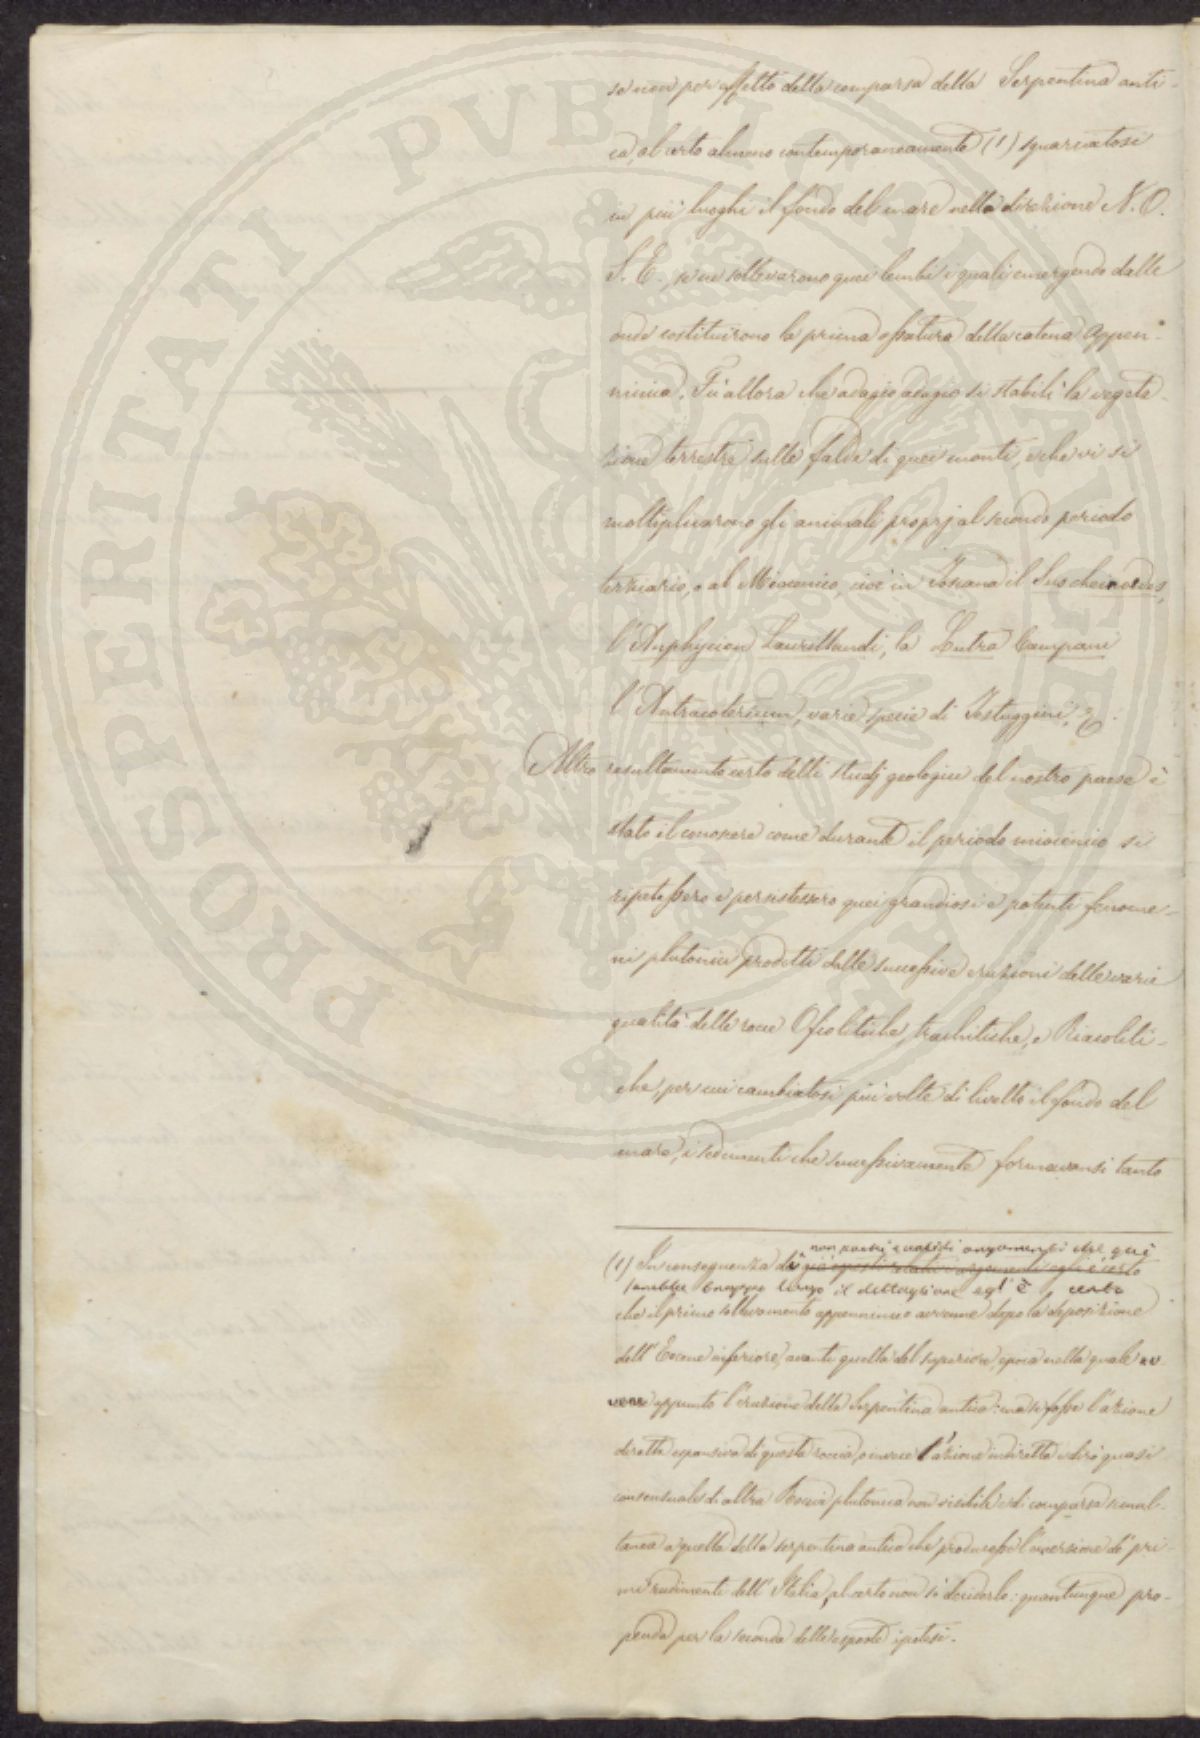 se non per effetto della comparsa della Serpentina anti-
ca, al certo almeno contemporaneamente (1) squarciatosi
in più luoghi il fondo del mare nella direzione N.O.
S.E. se ne sollevarono quei lembi i quali emergendo dalle
onde costituirono la prima ossatura della catena Appen-
ninica. Fu allora che adagio adagio si stabilì la vegeta-
zione terrestre sulle falde di quei monti, e che vi si
moltiplicarono gli animali proprj al secondo periodo
terziario, o al Miocenico, cioè in Toscana il Sus choiroides,
l'Amphycion Laurillardi, la Lutra Campani
l'Antracoterium, varie specie di Testuggini, &.
Altro resultamento certo delli studj geologici del nostro paese è
stato il conoscere come durante il periodo miocenico si
ripetessero e persistessero quei grandiosi e potenti fenome-
ni plutonici prodotti dalle successive eruzioni delle varie
qualità delle rocce Ofiolitiche, trachitiche, e Riacoliti-
che, per cui cambiatosi più volte di livello il fondo del
mare, i sedimenti che successivamente formavansi tanto
(1) In conseguenza di non pochi e validi argomenti che qui
già esposti relativi argomenti egli è certo
sarebbe troppo lungo il dettagliare egl' è certo
che il primo sollevamento appenninico avvenne dopo la deposizione
dell'Eocene inferiore, avanti quella del superiore, epoca nella quale av
venne appunto l'eruzione della Serpentina antica: ma se fosse l'azione
diretta espansiva di questa roccia, o invece l'azione indiretta e dirò quasi
consensuale di altra Roccia plutonica non visibile e di comparsa simul-
tanea a quella della serpentina antica che producesse l'emersione de' pri-
mi rudimenti dell'Italia, al certo non si deciderlo: quantunque pro-
penda per la seconda delle esposte ipotesi.
PROSPERITATI PVBLICAE AVGENDAE